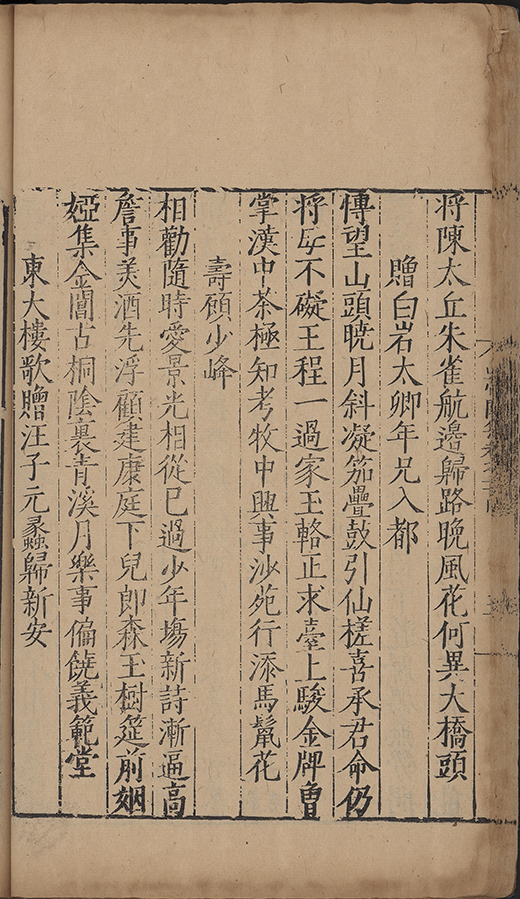 将陳太丘朱雀航邊歸路晚風花何異大橋頭
贈白岩太卿年兄入都
博望山頭曉月斜凝笳疊鼓引仙槎喜承君命仍
将母不礙王程一過家玉輅正求臺上駿金牌曽
掌漢中茶極知考牧中興事沙苑行添馬鬣花
壽頋少峰
相勸隨時愛景光相從已過少年塲新詩漸逼高
詹事美酒先浮顧建康庭下兒郎森玉樹筵前姻
婭集金閶古桐陰裏青溪月樂事偏饒義範堂
東大樓歌贈汪子元蠡歸新安